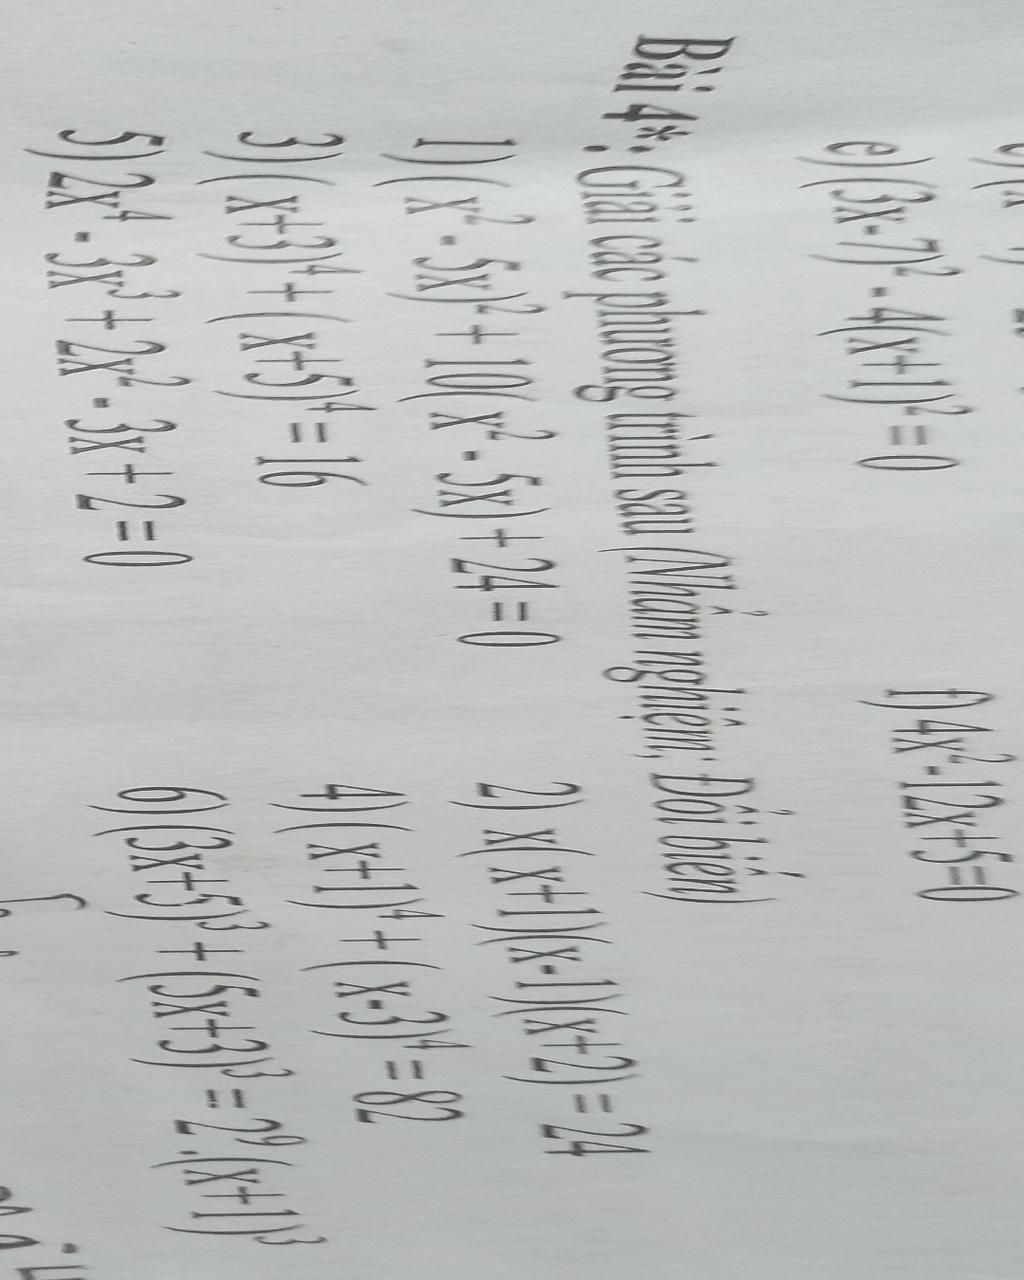 e) (3x-7)² - 4(x+1)² = 0
f) 4x²-12x+5=0
Bài 4*: Giải các phương trình sau (Nhẩm nghiệm; Đổi biến)
1) ( x² - 5x)² + 10( x² - 5x) + 24 = 0
2) x( x+1)(x-1)(x+2) = 24
3) ( x+3)⁴ + ( x+5)⁴ = 16
4) ( x+1)⁴ + ( x-3)⁴ = 82
5) 2x⁴ - 3x³ + 2x² - 3x + 2 = 0
6) (3x+5)³ + (5x+3)³ = 2⁹.(x+1)³